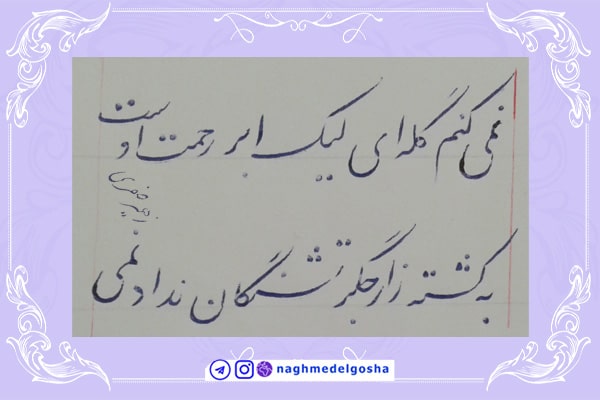 نمی کنم گله ای لیک ابر رحمت دوست
به کشته زار جگر تشنگان نداد نمی
naghmedelgosha